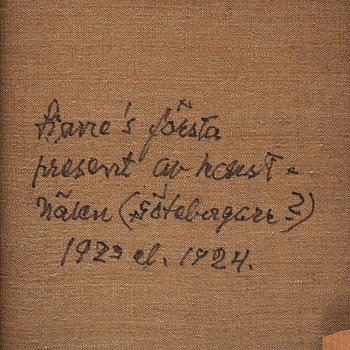 Bianre's första
present av konst-
nären (Göteborgare?)
1923 el. 1924.